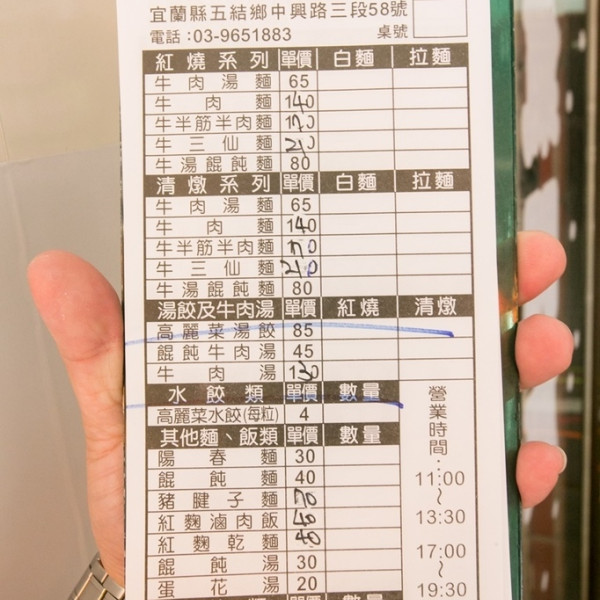 宜蘭縣五結鄉中興路三段58號
電話:03-9651883 桌號
紅燒系列 單價 白麵 拉麵
牛肉湯麵 65
牛肉麵 140
牛半筋半肉麵
牛三仙麵
牛湯餛飩麵 80
清燉系列 單價 白麵 拉麵
牛肉湯麵 65
牛肉麵 140
牛半筋半肉麵
牛三仙麵 210
牛湯餛飩麵 80
湯餃及牛肉湯 單價 紅燒 清燉
高麗菜湯餃 85
餛飩牛肉湯 45
牛肉湯 130
水餃類 單價 數量
高麗菜水餃(每粒) 4
其他麵、飯類 單價 數量
陽春麵 30
餛飩麵 40
豬腱子麵 70
紅麴滷肉飯
紅麴乾麵
餛飩湯 30
蛋花湯 20
單價 數量
營業時間:
11:00
~
13:30
17:00
~
19:30